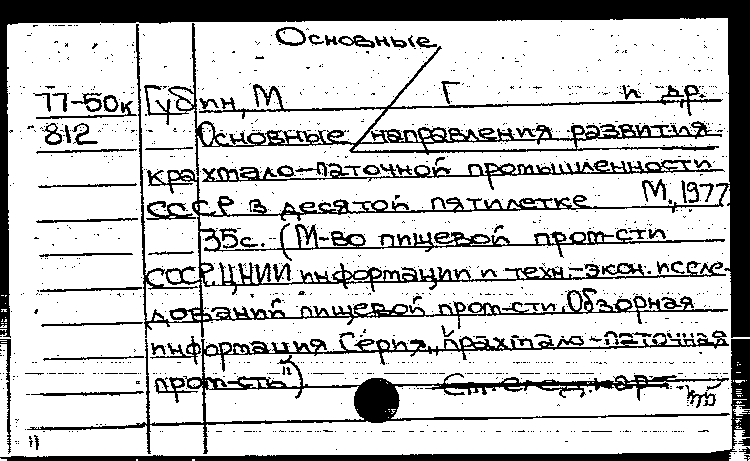 Основные
77-50к Губин, М Г и др.
812 Основные направления развития
крахмало-паточной промышленности
СССР в десятой пятилетке М., 1977
35с. (М-во пищевой пром-сти
СССР. ЦНИИ информации и техн.-экон. иссле-
дований пищевой пром-сти. Обзорная
информация Серия „Крахмало-паточная
пром-сть")
См. след. карт
11